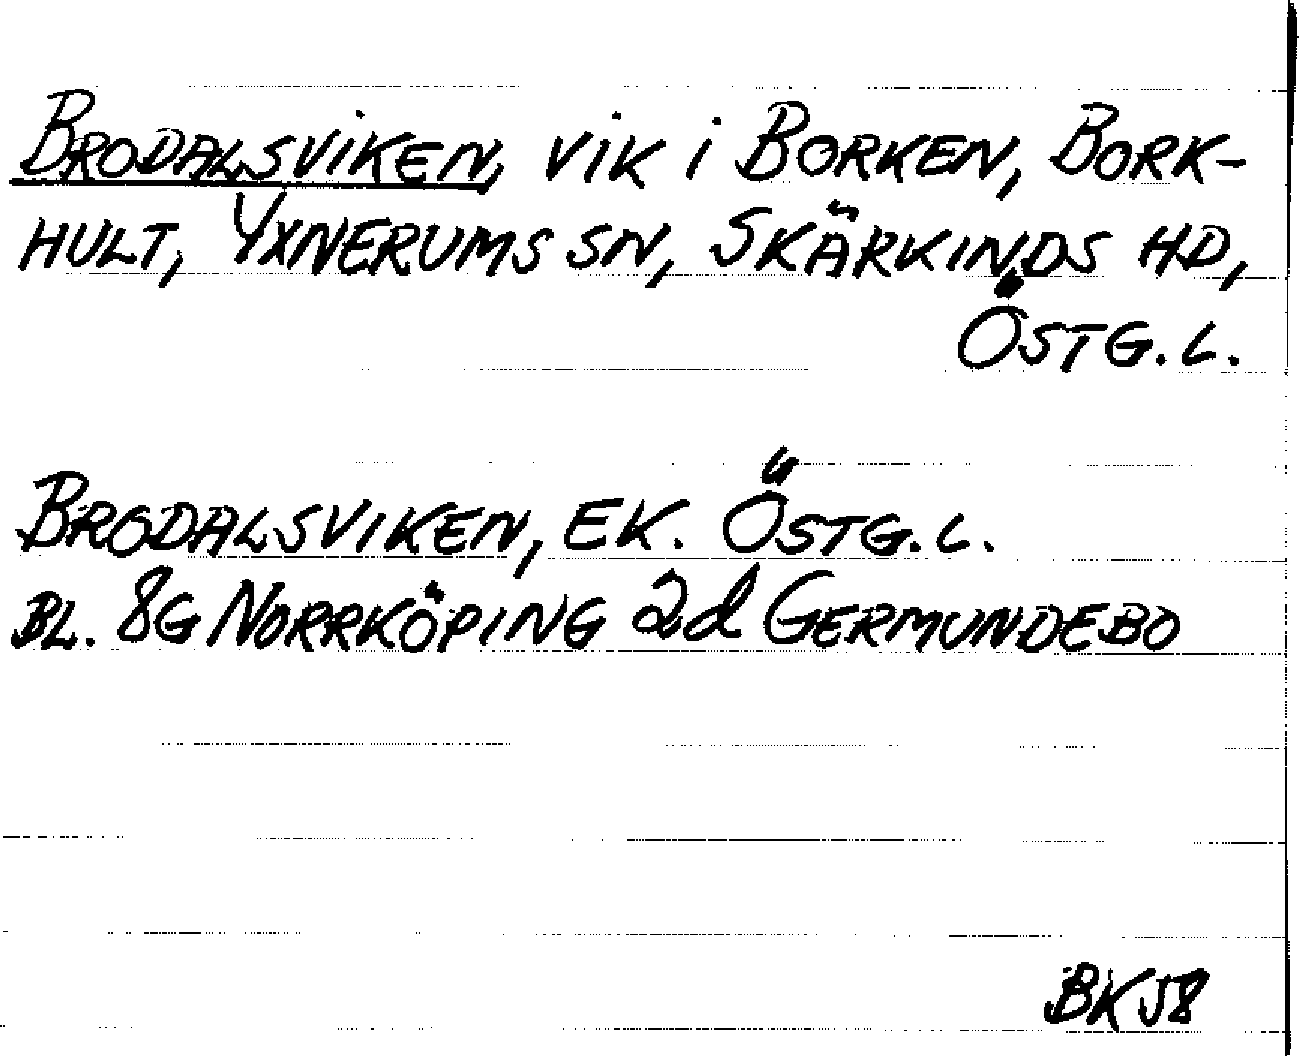 BRODALSVIKEN, VIK I BORKEN, BORK-
HULT, YXNERUMS SN, SKÄRKINDS HD,
ÖSTG. L.
BRODALSVIKEN, EK. ÖSTG. L.
BL. 8G NORRKÖPING 2d GERMUNDEBO
BKJ8